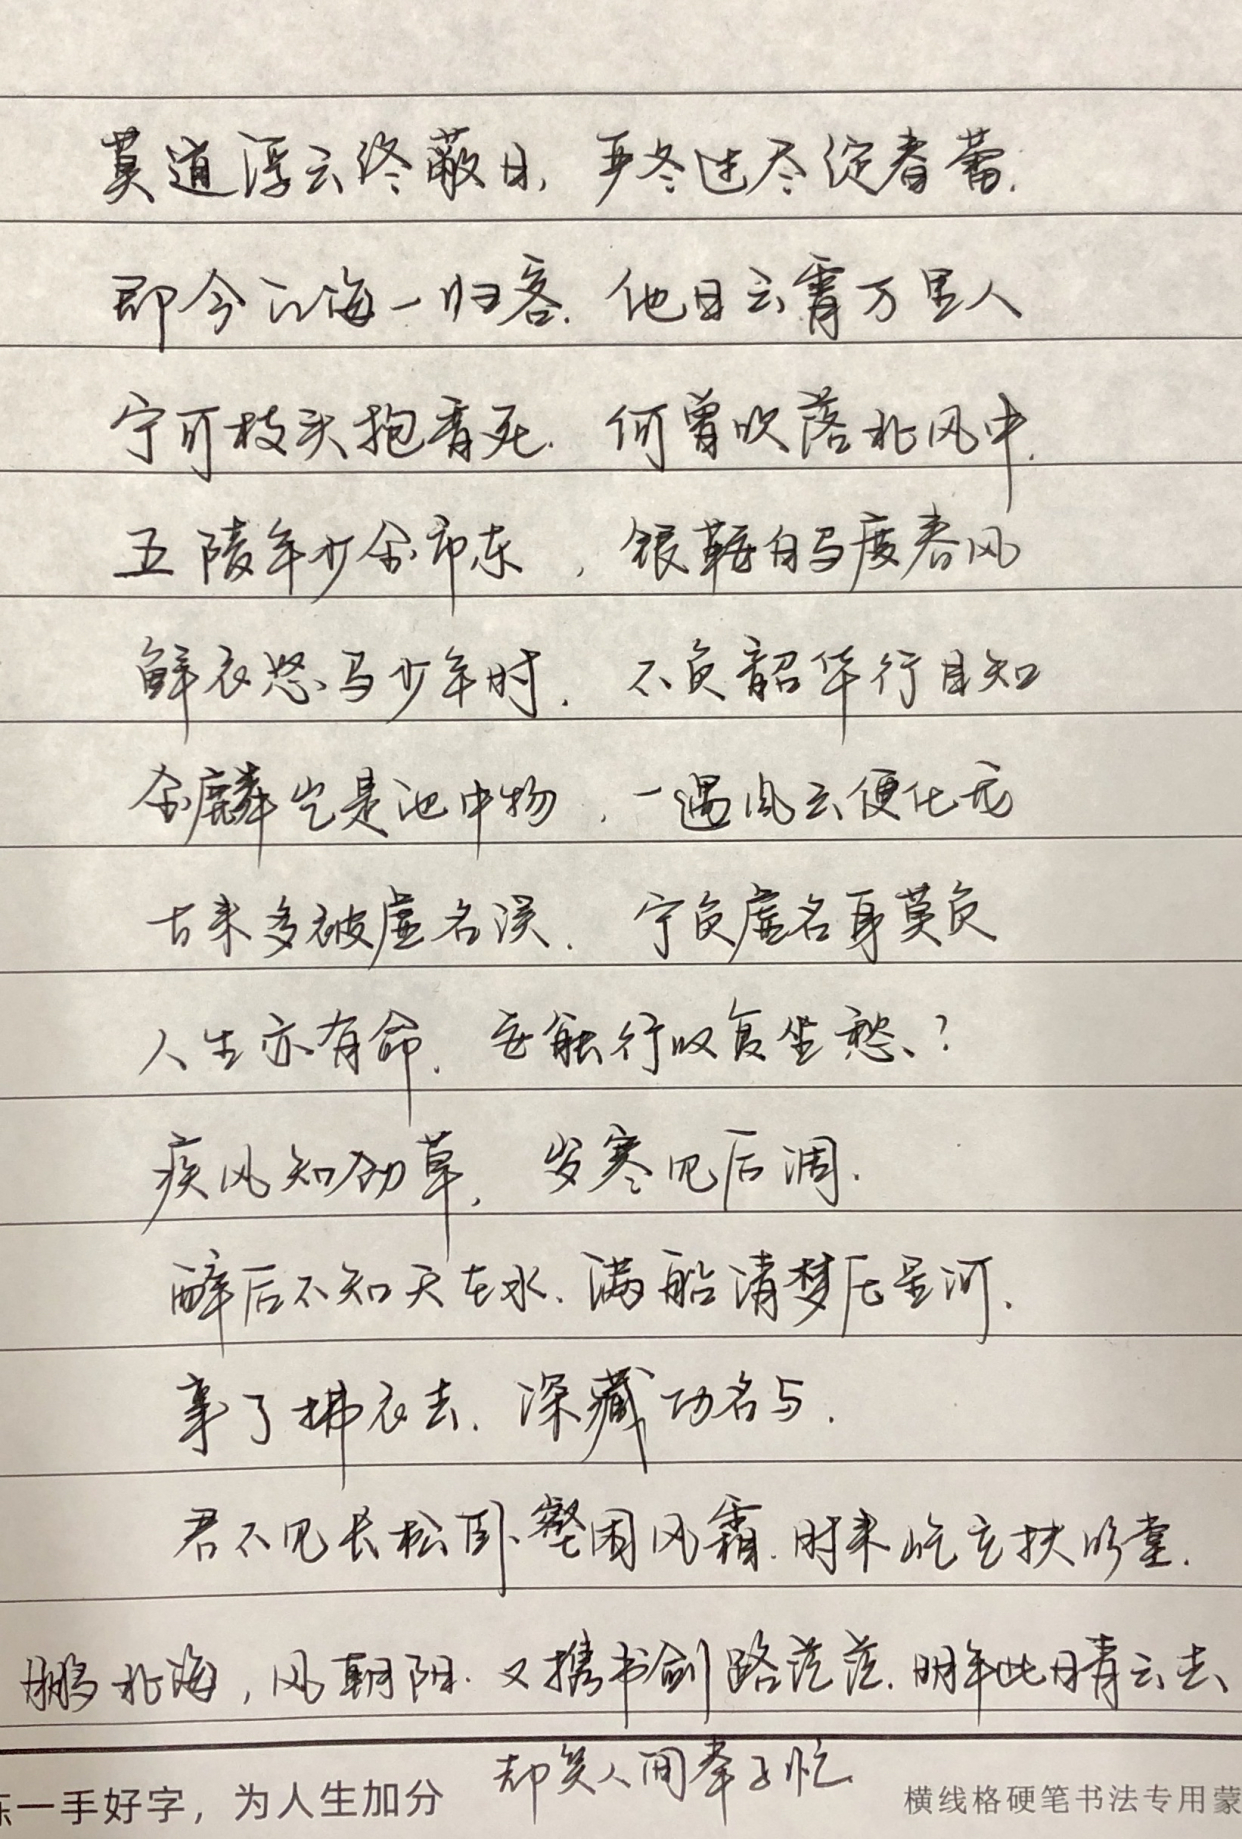 莫道浮云终蔽日,严冬过尽绽春蕾.
即今江海一归客.他日云霄万里人
宁可枝头抱香死.何曾吹落北风中.
五陵年少金市东,银鞍白马度春风
鲜衣怒马少年时.不负韶华行且知
金麟岂是池中物,一遇风云便化龙
古来多被虚名误.宁负虚名身莫负
人生亦有命.安能行叹复坐愁?
疾风知劲草,岁寒见后凋.
醉后不知天在水.满船清梦压星河.
事了拂衣去.深藏功名与.
君不见长松卧壑困风霜.时来屹立扶明堂.
鹏北海,风朝阳.又携书剑路茫茫.明年此日青云去、
却笑人间举子忙
练一手好字,为人生加分
横线格硬笔书法专用蒙